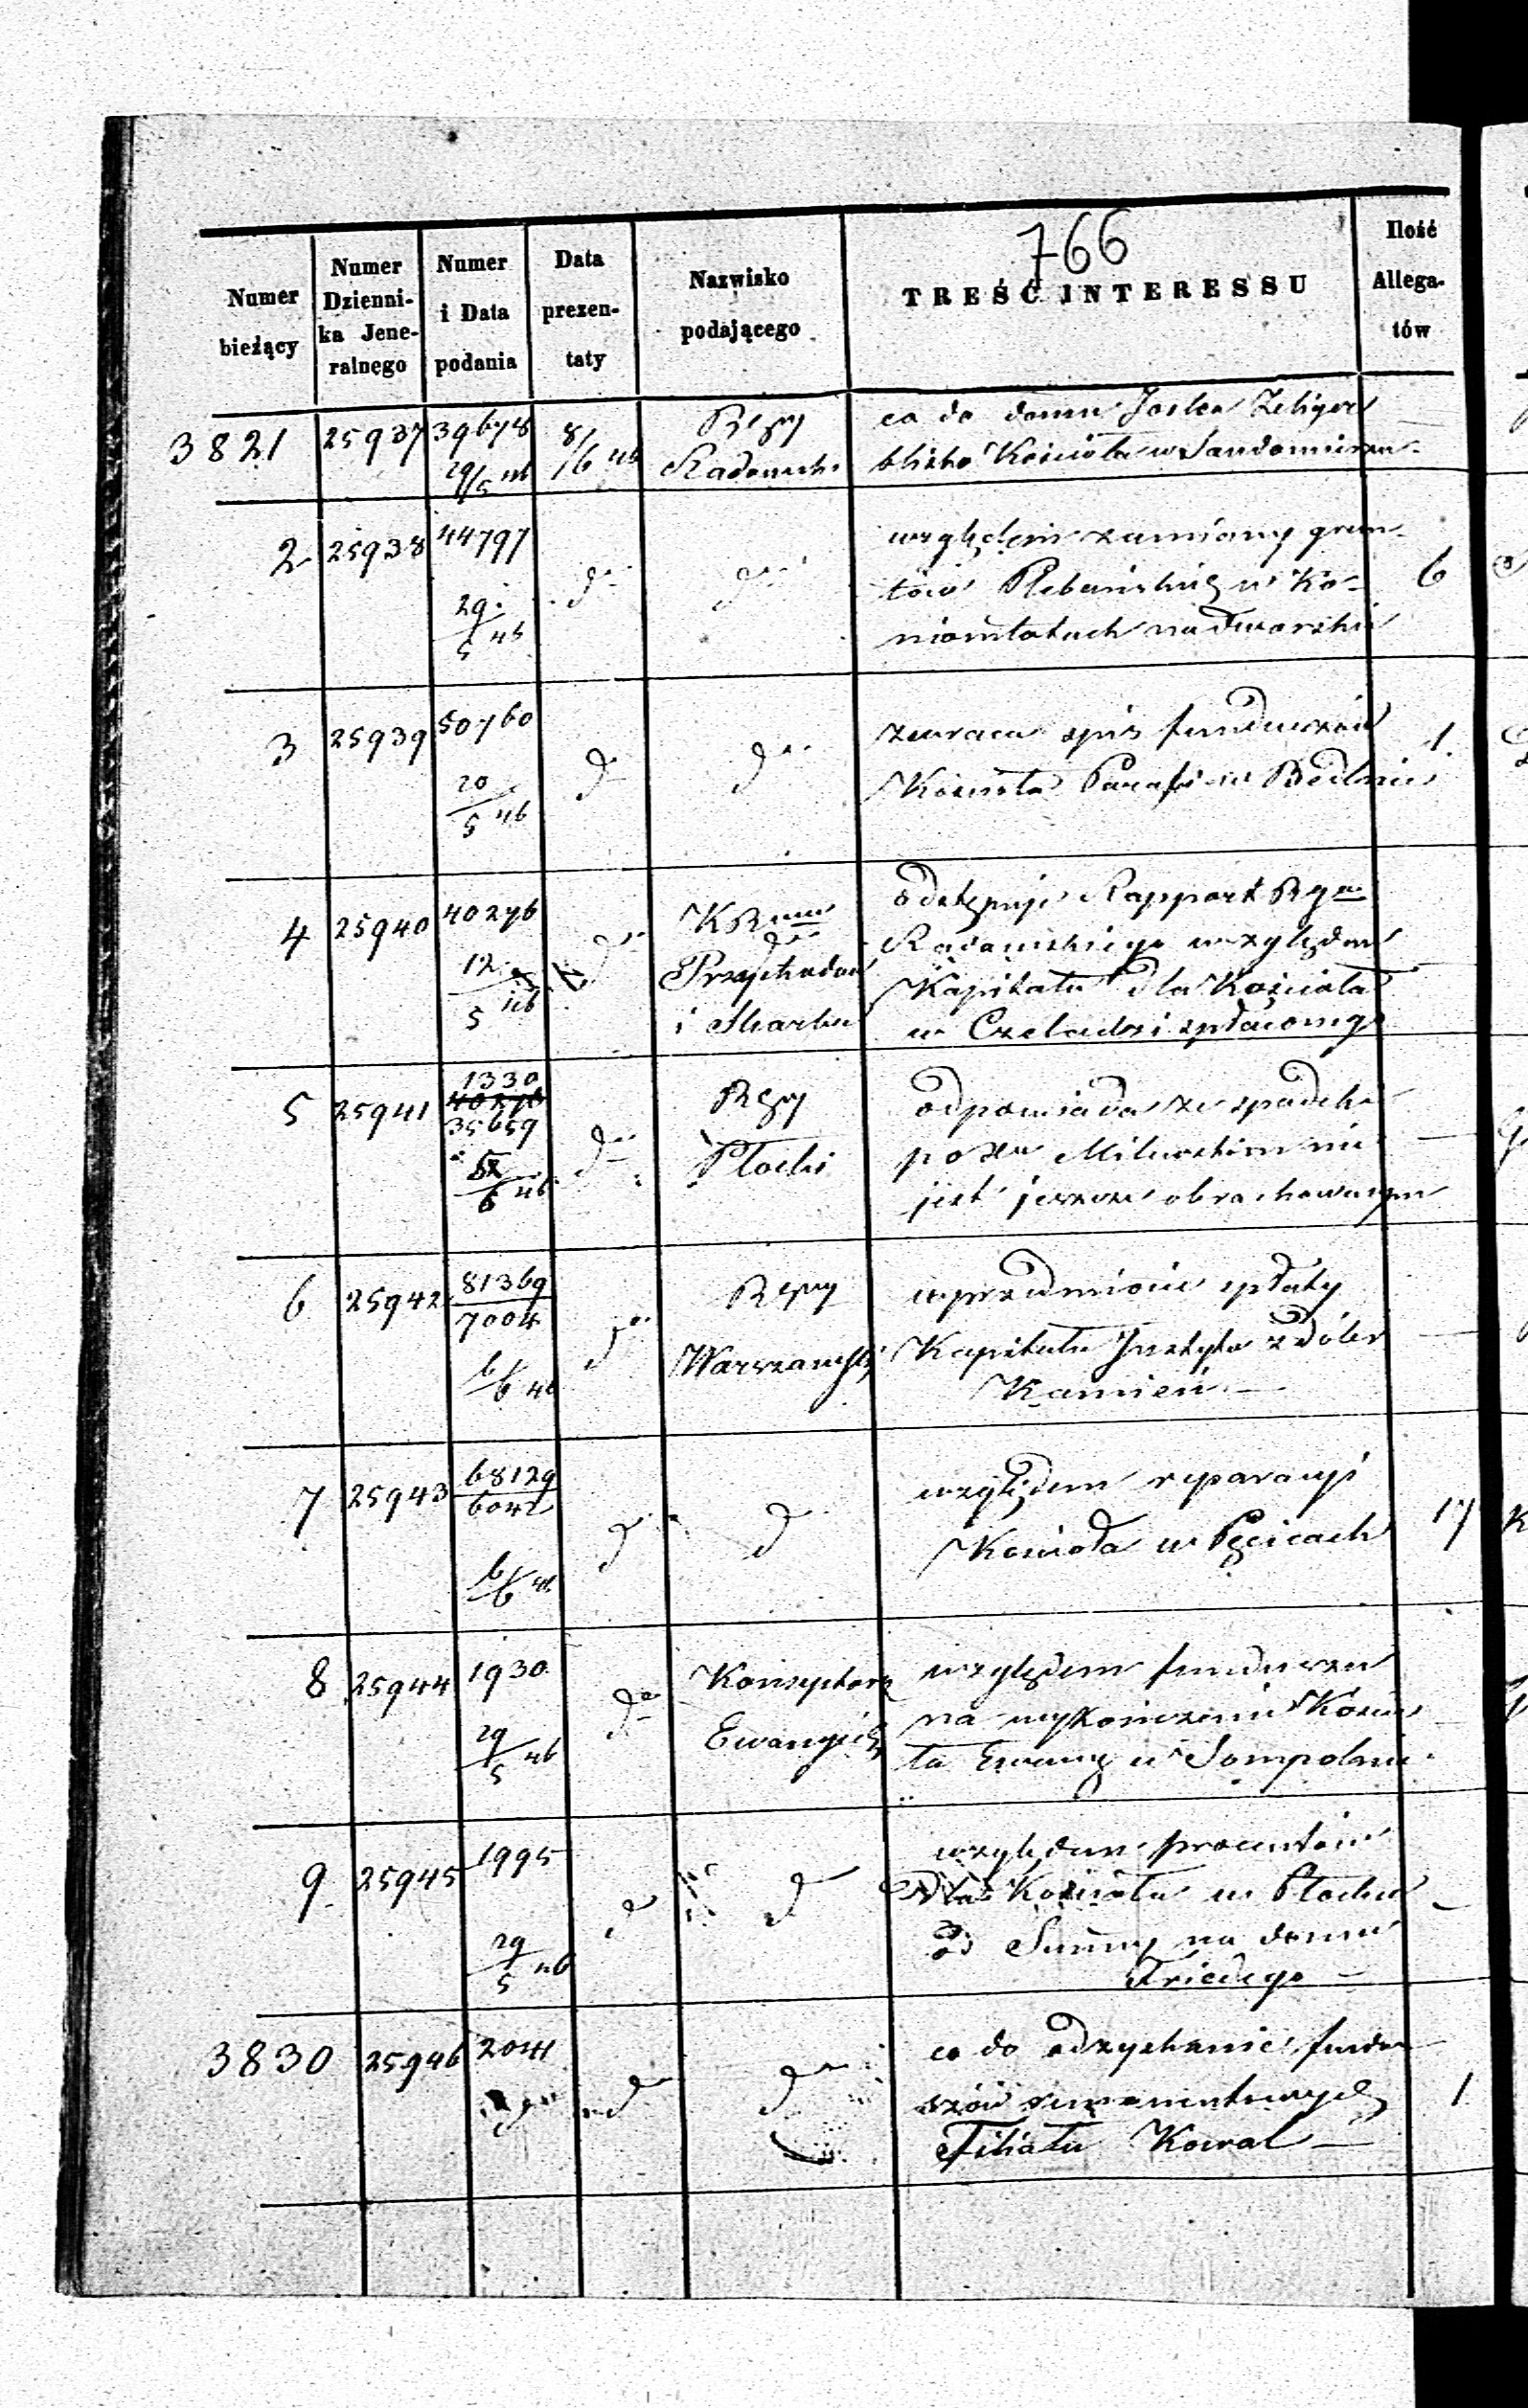 766
Numer bieżący
Numer Dzienni-ka Jene-ralnego
Numer i Data podania
Data prezen-taty
Nazwisko podającego
TREŚĆ INTERESSU
Ilość Allega-tów
3821 25937 39678 29/5 46 8/6 46 Rząd Radomski
co do domu Joska
blisko Kościoła w Sandomierzu
2 25938 44797 29/5 46 do do 6
względem zamiany grun-
tów Plebańskich w Ko-
niemłotach na Dworskie
3 25939 50760 20/5 46 do do 1.
zwraca spis funduszów
Kościoła Paraf: w Bedlnie
4 25940 40276 12/5 46 do
Przychodów
i Skarbu
odstępuje Rapport Rgu
Radomskiego względem
Kapitału dla Kościoła
w Czeladzi spłaconego
5 25941 1330 40276 35659 6/6 46 do Płocki
odpowiada że spadek
po Xu Milewskim nie
jest jeszcze obrachowanym
6 25942 81369/7004 6/6 46 do Warszawski
w przedmiocie spłaty
Kapitału Instyta z dóbr
Kamień —
7 25943 68129/6042 6/6 46 do do 17
względem reparacyi
Kościoła w Pęcicach
8 25944 1930 29/5 46 do Konsystorz
Ewangich
względem funduszu
na wykończenie Kościo
ła Ewang w Sompolnie
9 25945 1995 29/5 46 do do
względem procentów
dla Kościoła w Płocku
od Summy na domu
Friedego —
3830 25946 2044 do do do 1
co do odzyskania fundu
szów remanentowych
Filiału Kowal —